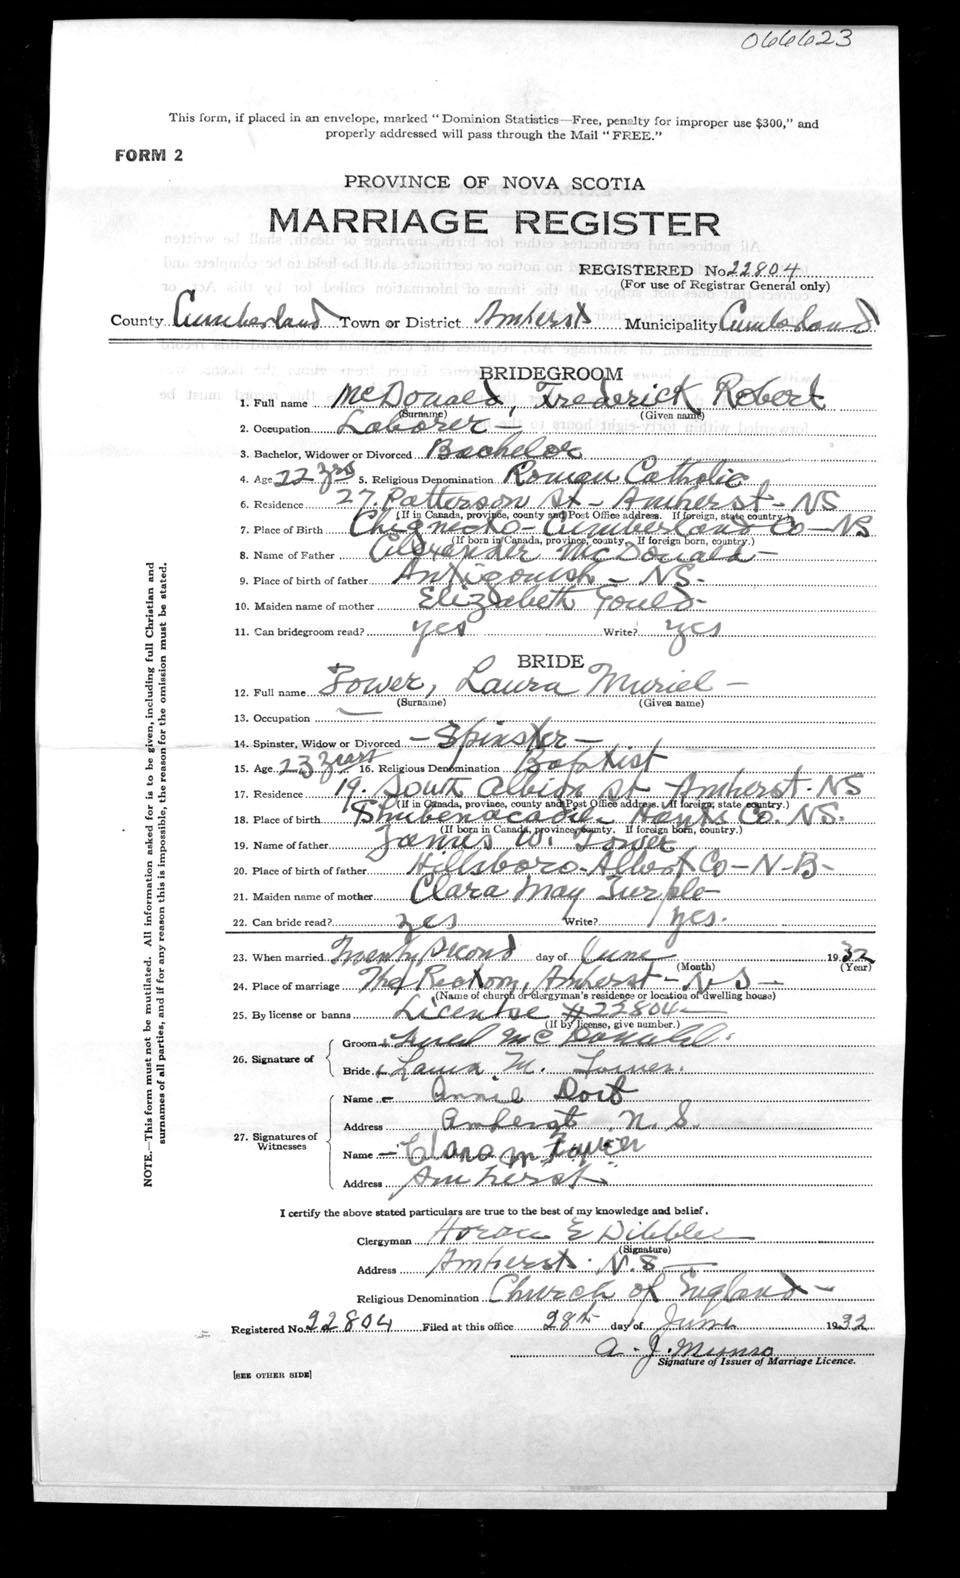 066623
This form, if placed in an envelope, marked "Dominion Statistics—Free, penalty for improper use $300," and
properly addressed will pass through the Mail "FREE."
FORM 2
PROVINCE OF NOVA SCOTIA
MARRIAGE REGISTER
REGISTERED No. 22804
(For use of Registrar General only)
County Cumberland Town or District Amherst Municipality Cumberland
BRIDEGROOM
1. Full name McDonald, Frederick Robert
(Surname) (Given name)
2. Occupation Laborer —
3. Bachelor, Widower or Divorced Bachelor
4. Age 22 yrs 5. Religious Denomination Roman Catholic
6. Residence 27. Patterson St - Amherst - NS
(If in Canada, province, county and Post Office address. If foreign, state country.)
7. Place of Birth Chignecto - Cumberland Co - NS
(If born in Canada, province, county. If foreign born, country.)
8. Name of Father Alexander McDonald -
9. Place of birth of father Antigonish - NS -
10. Maiden name of mother Elizabeth Gould -
11. Can bridegroom read? yes Write? yes
BRIDE
12. Full name Tower, Laura Muriel -
(Surname) (Given name)
13. Occupation —
14. Spinster, Widow or Divorced - Spinster -
15. Age 23 years 16. Religious Denomination Baptist
17. Residence 19. South Albion St - Amherst - NS
(If in Canada, province, county and Post Office address. If foreign, state country.)
18. Place of birth Shubenacadie Hants Co. NS.
(If born in Canada, province, county. If foreign born, country.)
19. Name of father James W. Tower
20. Place of birth of father Hillsboro - Albert Co - N - B -
21. Maiden name of mother Clara May Turple -
22. Can bride read? yes Write? yes.
23. When married Twenty second day of June 1932
(Month) (Year)
24. Place of marriage The Rectory, Amherst - NS -
(Name of church or clergyman's residence or location of dwelling house)
25. By license or banns License # 22804 -
(If by license, give number.)
26. Signature of
Groom Fred McDonald.
Bride Laura M. Tower.
27. Signatures of Witnesses
Name Annie
Address Amherst N. S.
Name Clara M Tower
Address Amherst.
I certify the above stated particulars are true to the best of my knowledge and belief.
Clergyman Horace E Dibblee
(Signature)
Address Amherst. N.S —
Religious Denomination Church of England -
Registered No. 22804 Filed at this office 28th day of June 1932
A. J. Munro
Signature of Issuer of Marriage Licence.
[SEE OTHER SIDE]
NOTE.—This form must not be mutilated. All information asked for is to be given, including full Christian and
surnames of all parties, and if for any reason this is impossible, the reason for the omission must be stated.